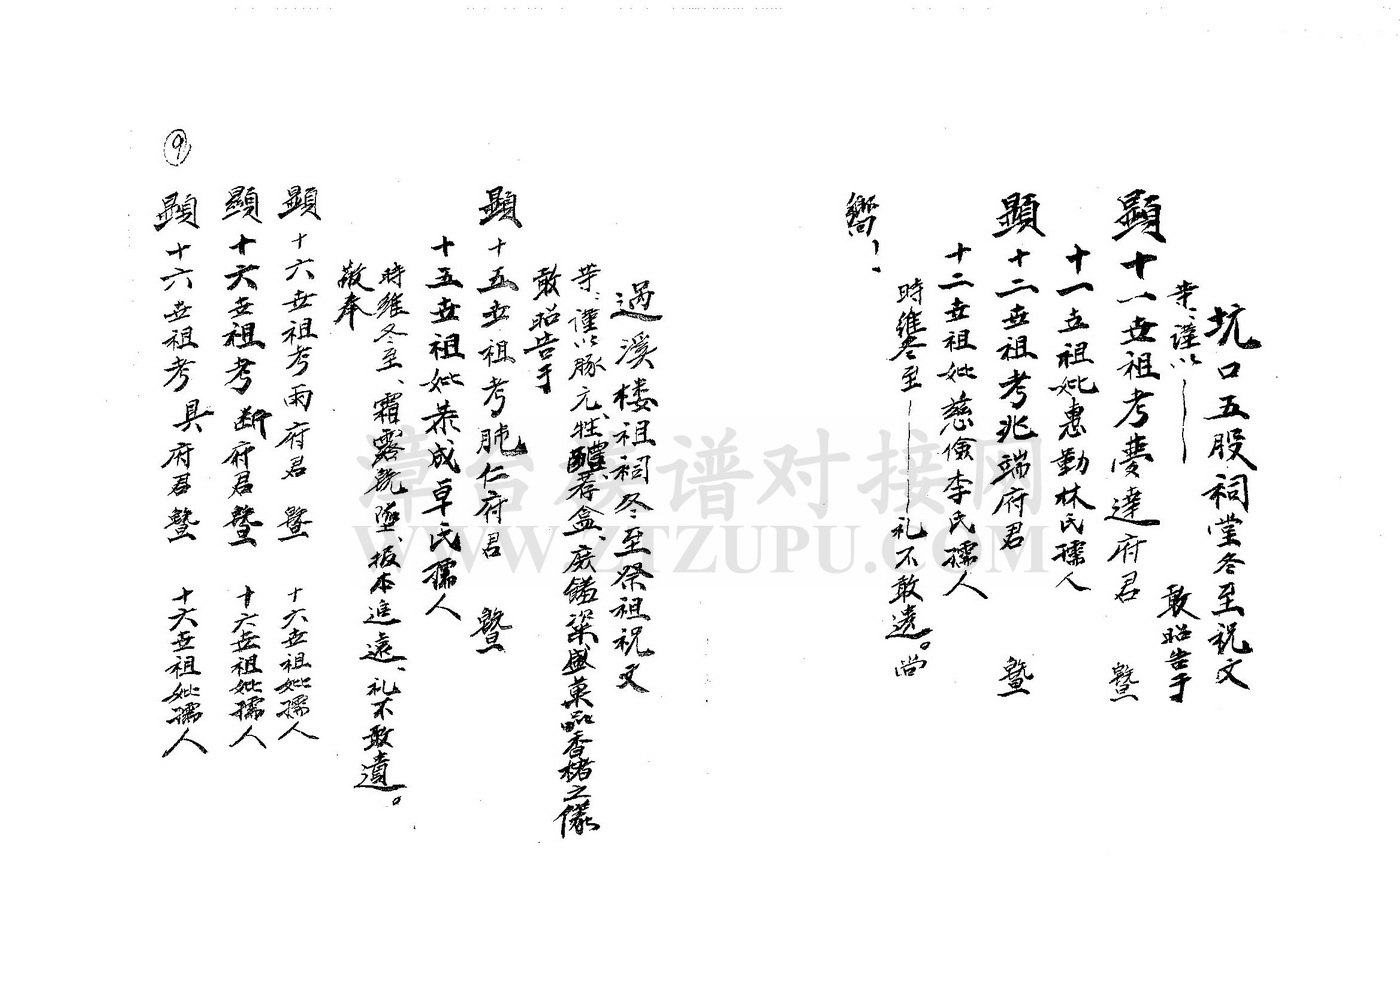 坑口五股祠堂冬至祝文
等、谨以—— 敢昭告于
顯十一世祖考慶達府君 暨
十一立祖妣惠勤林氏孺人
顯十二世祖考兆端府君 暨
十二世祖妣慈儉李氏孺人
時維冬至——礼不敢遗。尚
嚮！
過溪楼祖祠冬至祭祖祝文
等、谨以豚元、牲醴、孝盒、庶饈粢盛菓品香楮之儀
敢昭告于
顯十五世祖考肫仁府君 暨
十五世祖妣恭成卓氏孺人
時維冬至、霜露既墜、报本追遠、礼不敢遺。
敬奉
顯十六世祖考雨府君 暨 十六世祖妣孺人
顯十六世祖考断府君暨 十六世祖妣孺人
顯十六世祖考具府君暨 十六世祖妣孺人
⑨
漳台族谱对接网
WWW.ZTZUPU.COM